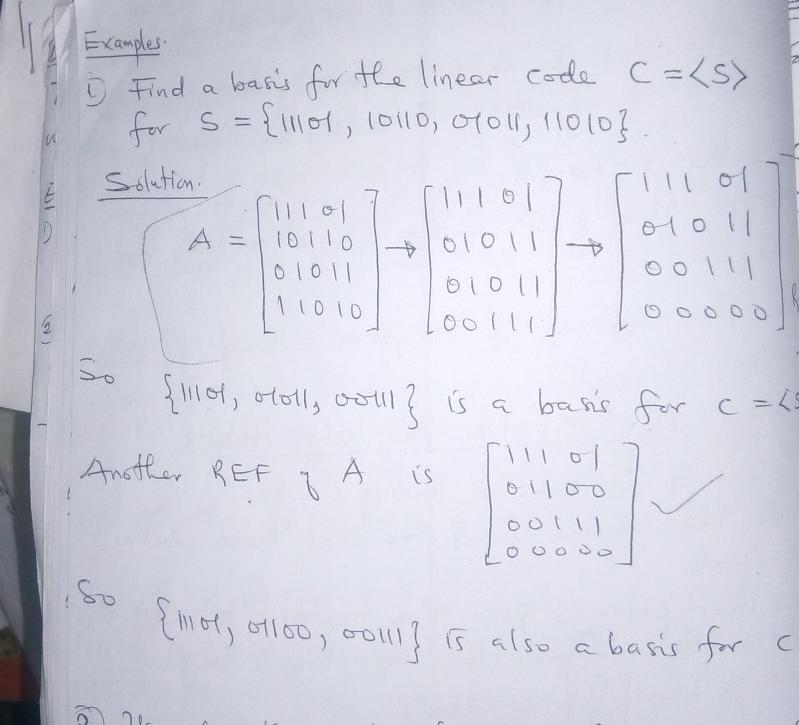 Examples.
1) Find a basis for the linear code C = <S>
for S = {11101, 10110, 01011, 11010}.
Solution.
A = [11101 → [11101 → [11101
10110 01011 01011
01011 01011 00111
11010] 00111] 00000]
So {11101, 01011, 00111} is a basis for C = <S
Another REF of A is [11101
01100
00111
00000]
So {11101, 01100, 00111} is also a basis for C